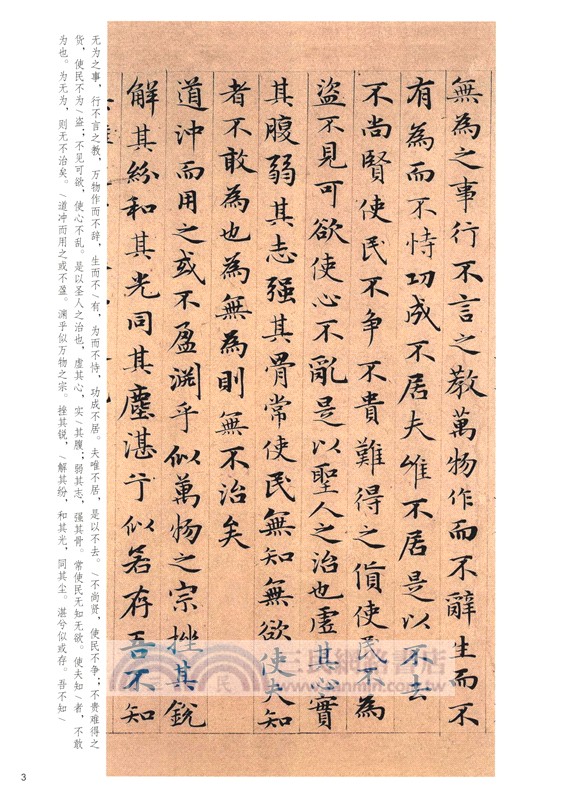 無為之事行不言之教萬物作而不辭生而不
有為而不恃功成不居夫唯不居是以不去
不尚賢使民不争不貴難得之貨使民不為
盜不見可欲使心不亂是以聖人之治也虛其心實
其腹弱其志强其骨常使民無知無欲使夫知
者不敢為也為無為則無不治矣
道沖而用之或不盈渊乎似萬物之宗挫其銳
解其紛和其光同其塵湛兮似若存吾不知
无为之事，行不言之教，万物作而不辞，生而不/有，为而不恃，功成不居。夫唯不居，是以不去。/不尚贤，使民不争；不贵难得之
货，使民不为/盗；不见可欲，使心不乱。是以圣人之治也，虚其心，实/其腹；弱其志，强其骨。常使民无知无欲。使夫知/者，不敢
为也。为无为，则无不治矣。/道冲而用之或不盈。渊乎似万物之宗。挫其锐，/解其纷，和其光，同其尘。湛兮似或存。吾不知/
三民網路書店
3